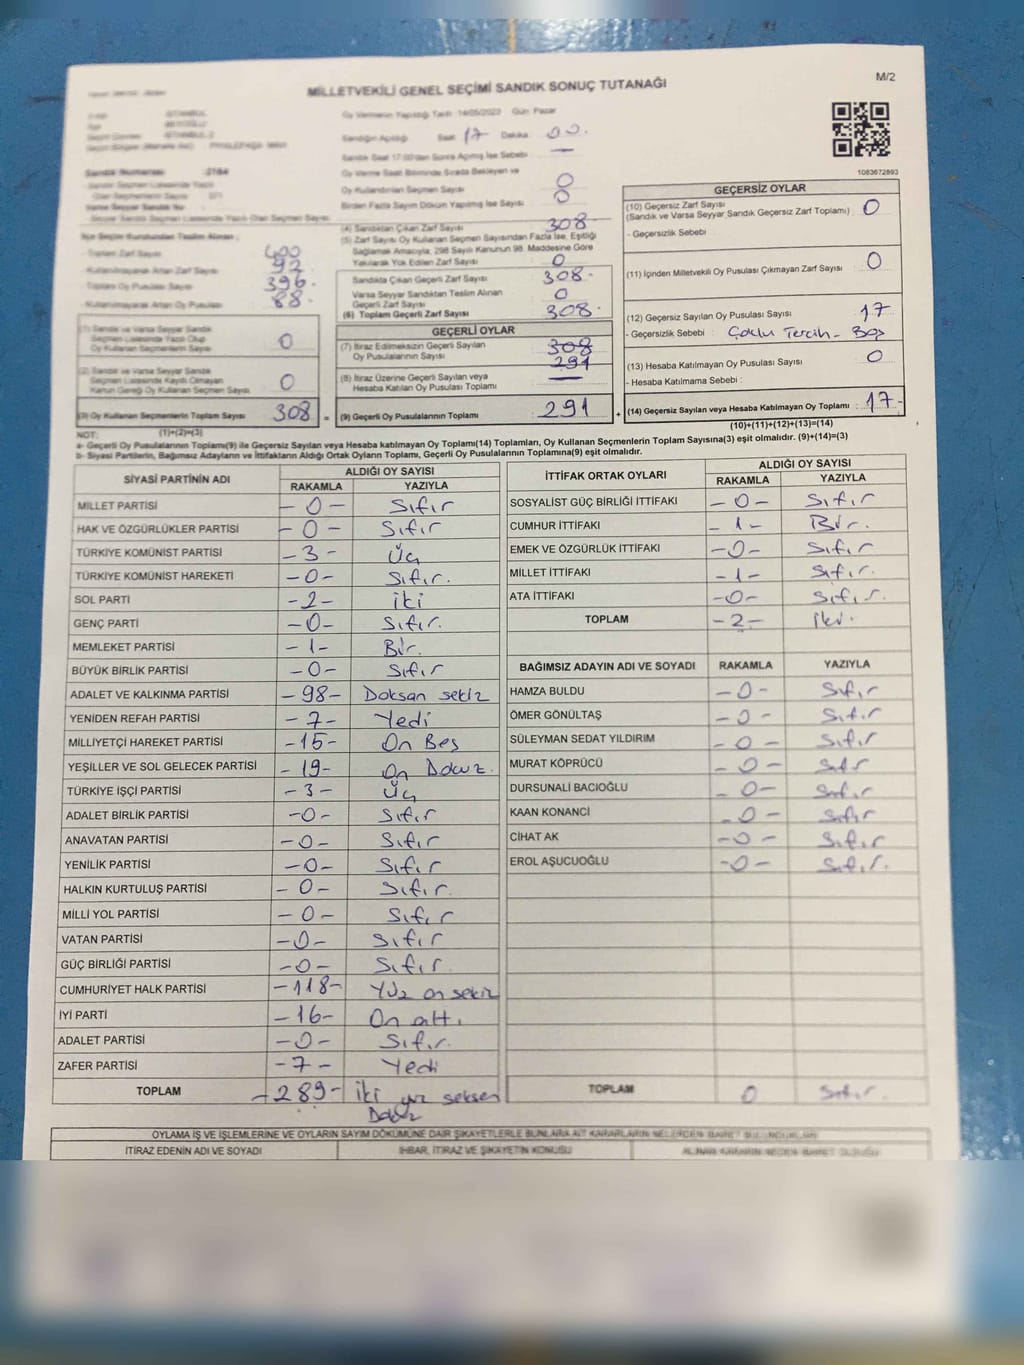 M/2
MİLLETVEKİLİ GENEL SEÇİMİ SANDIK SONUÇ TUTANAĞI
Oy Vermenin Yapıldığı Tarih: 14/05/2023 Gün: Pazar
Sandığın Açıldığı Saat 17 Dakika 00.
Sandık Saat 17:00'dan Sonra Açılmış İse Sebebi —
Oy Verme Saati Bitiminde Sırada Bekleyen ve
Oy Kullandırılan Seçmen Sayısı 0
Birden Fazla Sayım Döküm Yapılmış İse Sayısı 0
Sandık Numarası 2164
(4) Sandıktan Çıkan Zarf Sayısı 308-
(5) Zarf Sayısı Oy Kullanan Seçmen Sayısından Fazla İse, Eşitliği
Sağlamak Amacıyla, 298 Sayılı Kanunun 98. Maddesine Göre
Yakılarak Yok Edilen Zarf Sayısı 0
Toplam Zarf Sayısı 400
Kullanılmayarak Artan Zarf Sayısı 92
Toplam Oy Pusulası Sayısı 396-
Kullanılmayarak Artan Oy Pusulası 88-
Sandıkta Çıkan Geçerli Zarf Sayısı 308-
Varsa Seyyar Sandıktan Teslim Alınan
Geçerli Zarf Sayısı 0
(6) Toplam Geçerli Zarf Sayısı 308-
GEÇERLİ OYLAR
(7) İtiraz Edilmeksizin Geçerli Sayılan
Oy Pusulalarının Sayısı 308 291
(8) İtiraz Üzerine Geçerli Sayılan veya
Hesaba Katılan Oy Pusulası Toplamı —
(1) Sandık ve Varsa Seyyar Sandık
Seçmen Listesinde Yazılı Olup
Oy Kullanan Seçmenlerin Sayısı 0
(2) Sandık ve Varsa Seyyar Sandık
Seçmen Listesinde Kayıtlı Olmayan
Kanun Gereği Oy Kullanan Seçmen Sayısı 0
(3) Oy Kullanan Seçmenlerin Toplam Sayısı 308 = (9) Geçerli Oy Pusulalarının Toplamı 291 +
1083672893
GEÇERSİZ OYLAR
(10) Geçersiz Zarf Sayısı
(Sandık ve Varsa Seyyar Sandık Geçersiz Zarf Toplamı) 0
- Geçersizlik Sebebi
(11) İçinden Milletvekili Oy Pusulası Çıkmayan Zarf Sayısı 0
(12) Geçersiz Sayılan Oy Pusulası Sayısı 17
- Geçersizlik Sebebi : Çoklu Tercih - Boş
(13) Hesaba Katılmayan Oy Pusulası Sayısı 0
- Hesaba Katılmama Sebebi :
(14) Geçersiz Sayılan veya Hesaba Katılmayan Oy Toplamı : 17-
NOT: (1)+(2)=(3) (10)+(11)+(12)+(13)=(14)
a- Geçerli Oy Pusulalarının Toplamı(9) ile Geçersiz Sayılan veya Hesaba katılmayan Oy Toplamı(14) Toplamları, Oy Kullanan Seçmenlerin Toplam Sayısına(3) eşit olmalıdır. (9)+(14)=(3)
b- Siyasi Partilerin, Bağımsız Adayların ve İttifakların Aldığı Ortak Oyların Toplamı, Geçerli Oy Pusulalarının Toplamına(9) eşit olmalıdır.
SİYASİ PARTİNİN ADI ALDIĞI OY SAYISI
RAKAMLA YAZIYLA
MİLLET PARTİSİ - 0 - Sıfır
HAK VE ÖZGÜRLÜKLER PARTİSİ - 0 - Sıfır
TÜRKİYE KOMÜNİST PARTİSİ - 3 - Üç
TÜRKİYE KOMÜNİST HAREKETİ - 0 - Sıfır.
SOL PARTİ - 2 - iki
GENÇ PARTİ - 0 - Sıfır.
MEMLEKET PARTİSİ - 1 - Bir.
BÜYÜK BİRLİK PARTİSİ - 0 - Sıfır
ADALET VE KALKINMA PARTİSİ - 98 - Doksan sekiz
YENİDEN REFAH PARTİSİ - 7 - Yedi
MİLLİYETÇİ HAREKET PARTİSİ - 15 - On Beş
YEŞİLLER VE SOL GELECEK PARTİSİ - 19 - On Dokuz.
TÜRKİYE İŞÇİ PARTİSİ - 3 - Üç
ADALET BİRLİK PARTİSİ - 0 - Sıfır
ANAVATAN PARTİSİ - 0 - Sıfır
YENİLİK PARTİSİ - 0 - Sıfır
HALKIN KURTULUŞ PARTİSİ - 0 - Sıfır.
MİLLİ YOL PARTİSİ - 0 - Sıfır
VATAN PARTİSİ - 0 - Sıfır
GÜÇ BİRLİĞİ PARTİSİ - 0 - Sıfır.
CUMHURİYET HALK PARTİSİ - 118 - Yüz on sekiz
İYİ PARTİ - 16 - On altı.
ADALET PARTİSİ - 0 - Sıfır.
ZAFER PARTİSİ - 7 - Yedi
TOPLAM - 289 - iki yüz seksen
Dokuz
İTTİFAK ORTAK OYLARI ALDIĞI OY SAYISI
RAKAMLA YAZIYLA
SOSYALİST GÜÇ BİRLİĞİ İTTİFAKI - 0 - Sıfır
CUMHUR İTTİFAKI - 1 - Bir.
EMEK VE ÖZGÜRLÜK İTTİFAKI - 0 - Sıfır
MİLLET İTTİFAKI - 1 - Sıfır.
ATA İTTİFAKI - 0 - Sıfır.
TOPLAM - 2 - iki.
BAĞIMSIZ ADAYIN ADI VE SOYADI RAKAMLA YAZIYLA
HAMZA BULDU - 0 - Sıfır
ÖMER GÖNÜLTAŞ - 0 - Sıfır
SÜLEYMAN SEDAT YILDIRIM - 0 - Sıfır
MURAT KÖPRÜCÜ - 0 - Sıfır
DURSUNALİ BACIOĞLU - 0 - Sıfır
KAAN KONANCİ - 0 - Sıfır
CİHAT AK - 0 - Sıfır
EROL AŞUCUOĞLU - 0 - Sıfır.
TOPLAM 0 Sıfır.
OYLAMA İŞ VE İŞLEMLERİNE VE OYLARIN SAYIM DÖKÜMÜNE DAİR ŞİKAYETLERLE BUNLARA AİT KARARLARIN NELERDEN İBARET BULUNDUKLARI
İTİRAZ EDENİN ADI VE SOYADI İHBAR, İTİRAZ VE ŞİKAYETİN KONUSU ALINAN KARARIN NEDEN İBARET OLDUĞU